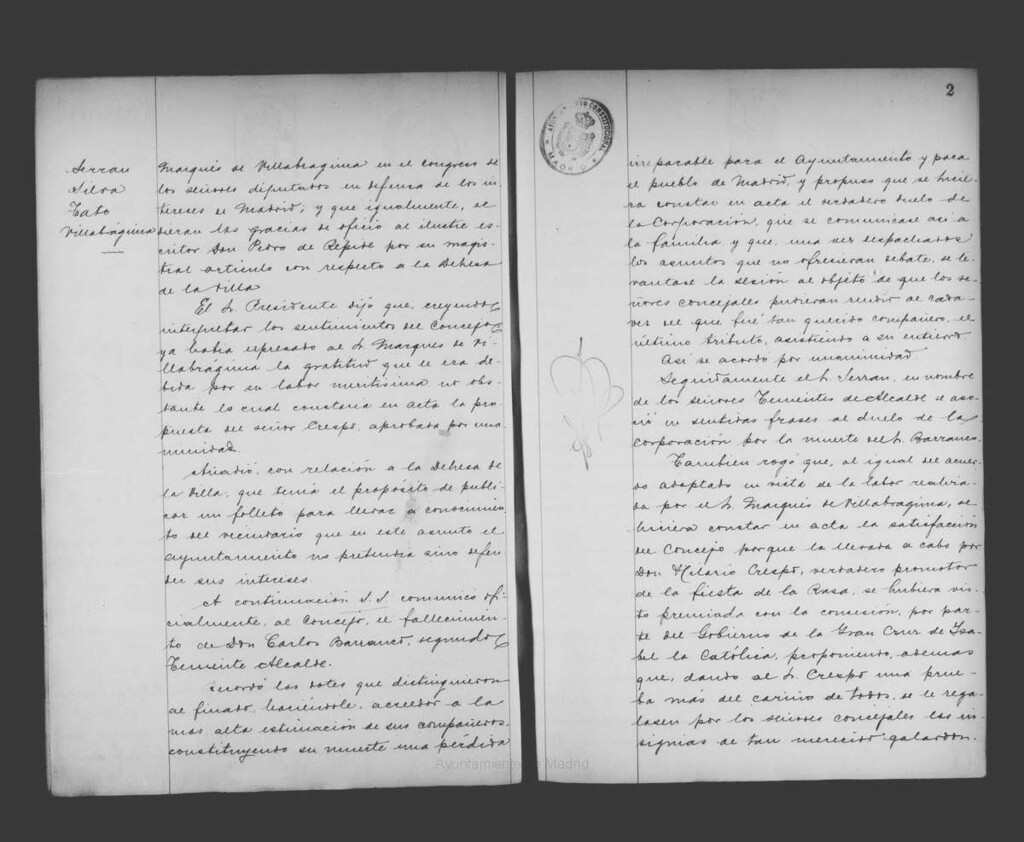 Serran
Silva
Tato
Villabrágima
Marqués de Villabrágima en el Congreso de
los señores diputados en defensa de los in-
tereses de Madrid; y que igualmente, se
dieran las gracias de oficio al ilustre es-
critor Don Pedro de Répide por su magis-
tral artículo con respecto a la Dehesa
de la Villa
El Sr. Presidente dijo que, creyendo
interpretar los sentimientos del Concejo
ya había expresado al Sr. Marqués de Vi-
llabrágima la gratitud que le era de-
bida por su labor meritísima no obs-
tante lo cual constaría en acta la pro-
puesta del señor Crespo, aprobada por una-
nimidad.
Añadió, con relación a la Dehesa de
la Villa, que tenía el propósito de publi-
car un folleto para llevar a conocimien-
to del vecindario que en este asunto el
Ayuntamiento no pretendía sino defen-
der sus intereses.
A continuación S.S. comunicó ofi-
cialmente, al Concejo, el fallecimien-
to de Don Carlos Barranco, segundo
Teniente Alcalde.
Recordó las dotes que distinguieron
al finado, haciéndole, acreedor a la
más alta estimación de sus compañeros,
constituyendo su muerte una pérdida
AYUNTAMIENTO CONSTITUCIONAL
MADRID
2
irreparable para el Ayuntamiento y para
el pueblo de Madrid, y propuso que se hicie-
ra constar en acta el verdadero duelo de
la Corporación, que se comunicase así a
la familia, y que, una vez despachados
los asuntos que no ofrecieran debate, se le-
vantase la sesión al objeto de que los se-
ñores concejales pudieran rendir al cadá-
ver del que fué tan querido compañero, el
último tributo, asistiendo a su entierro.
Así se acordó por unanimidad.
Seguidamente el Sr. Serran, en nombre
de los señores Tenientes de Alcalde se aso-
ció en sentidas frases al duelo de la
Corporación por la muerte del Sr. Barranco.
También rogó que, al igual del acuer-
do adoptado en vista de la labor realiza-
da por el Sr. Marqués de Villabrágima, se
hiciera constar en acta la satisfacción
del Concejo porque la llevada a cabo por
Don Hilario Crespo, verdadero promotor
de la fiesta de la Raza, se hubiera vis-
to premiada con la concesión, por par-
te del Gobierno de la Gran Cruz de Isa-
bel la Católica, proponiendo, además
que, dando al Sr. Crespo una prue-
ba más del cariño de todos, se le rega-
lasen por los señores concejales las in-
signias de tan merecido galardón.
Ayuntamiento de Madrid